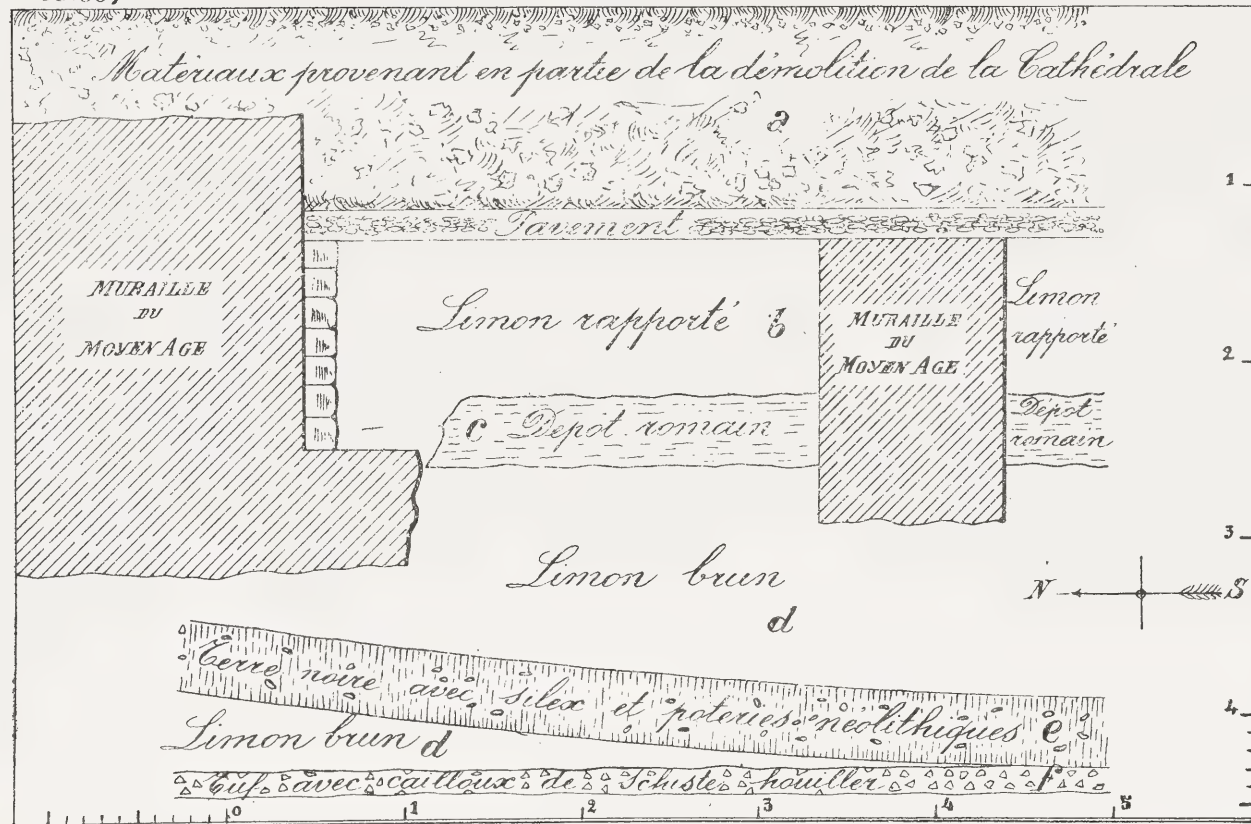 Matériaux provenant en partie de la démolition de la Cathédrale
a
1
Pavement
MURAILLE
DU
MOYEN AGE
Limon rapporté b
MURAILLE
DU
MOYEN AGE
Limon
rapporté
2
c Dépot romain
Dépot
romain
3
Limon brun
d
N S
Terre noire avec silex et poteries néolithiques e
4
Limon brun d
Tuf avec cailloux de Schiste houiller f
0 1 2 3 4 5